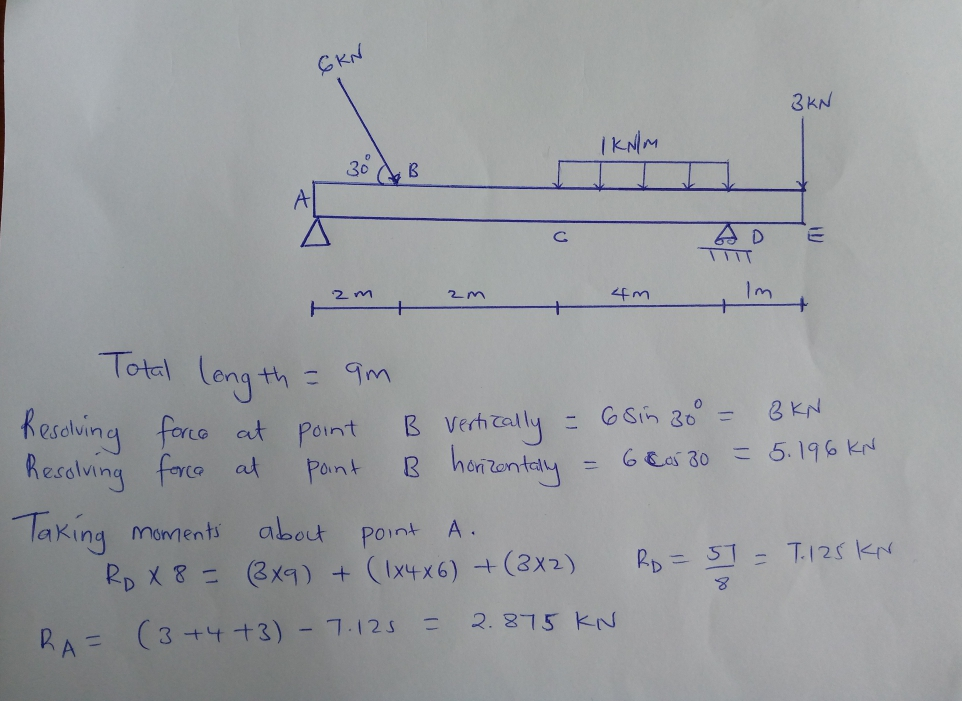 6KN
3KN
1KN/M
30° B
A
C D E
2m 2m 4m 1m
Total length = 9m
Resolving force at point B vertically = 6 Sin 30° = 3 KN
Resolving force at point B horizontaly = 6 Cos 30 = 5.196 KN
Taking moments about point A.
RD X 8 = (3x9) + (1x4x6) + (3x2) RD = 57/8 = 7.125 KN
RA = (3+4+3) - 7.125 = 2.875 KN